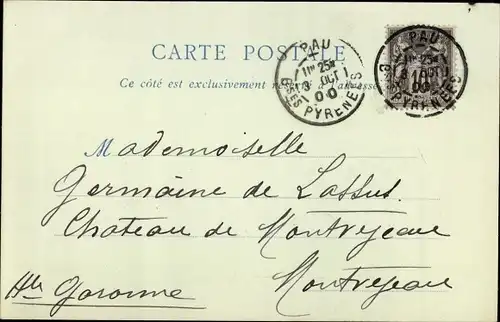 CARTE POSTALE
Ce côté est exclusivement réservé à l'adresse
PAU
11H 25M
3 OCT
00
BSES PYRENEES
PAU
11H 25M
3 OCT
00
BSES PYRENEES
Mademoiselle
Germaine de Lassus
Chateau de Montrejeau
Montrejeau
Hte Garonne